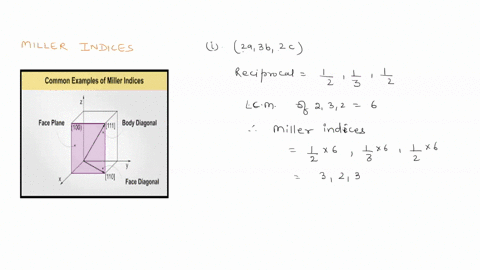 MILLER INDICES
Common Examples of Miller Indices
z
Face Plane
[100]
[111]
Body Diagonal
y
x
[110]
Face Diagonal
(i) (2a, 3b, 2c)
Reciprocal = 1/2, 1/3, 1/2
L.C.M. of 2, 3, 2 = 6
∴ Miller indices
= 1/2 × 6, 1/3 × 6, 1/2 × 6
= 3, 2, 3